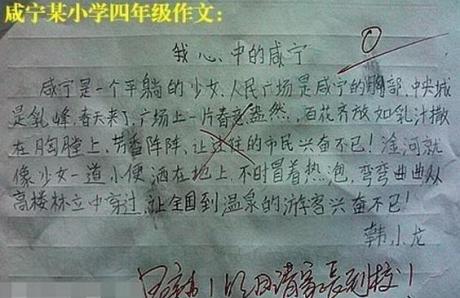 咸宁某小学四年级作文：
我心中的咸宁
咸宁是一个平躺的少女、人民广场是咸宁的胸部、中央城
是乳峰、春天来了、广场上一片春意盎然、百花齐放如乳汁撒
在胸膛上、芳香阵阵、让过往的市民兴奋不已！淦河就
像少女一道小便洒在地上、不时冒着热泡、弯弯曲曲从
高楼林立中穿过、让全国到温泉的游客兴奋不已！
韩小龙
！明日请家长到校！